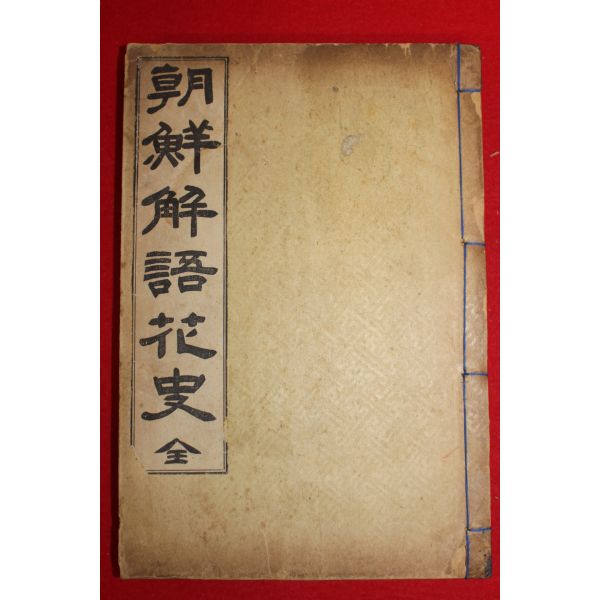 朝鮮解語花史 全